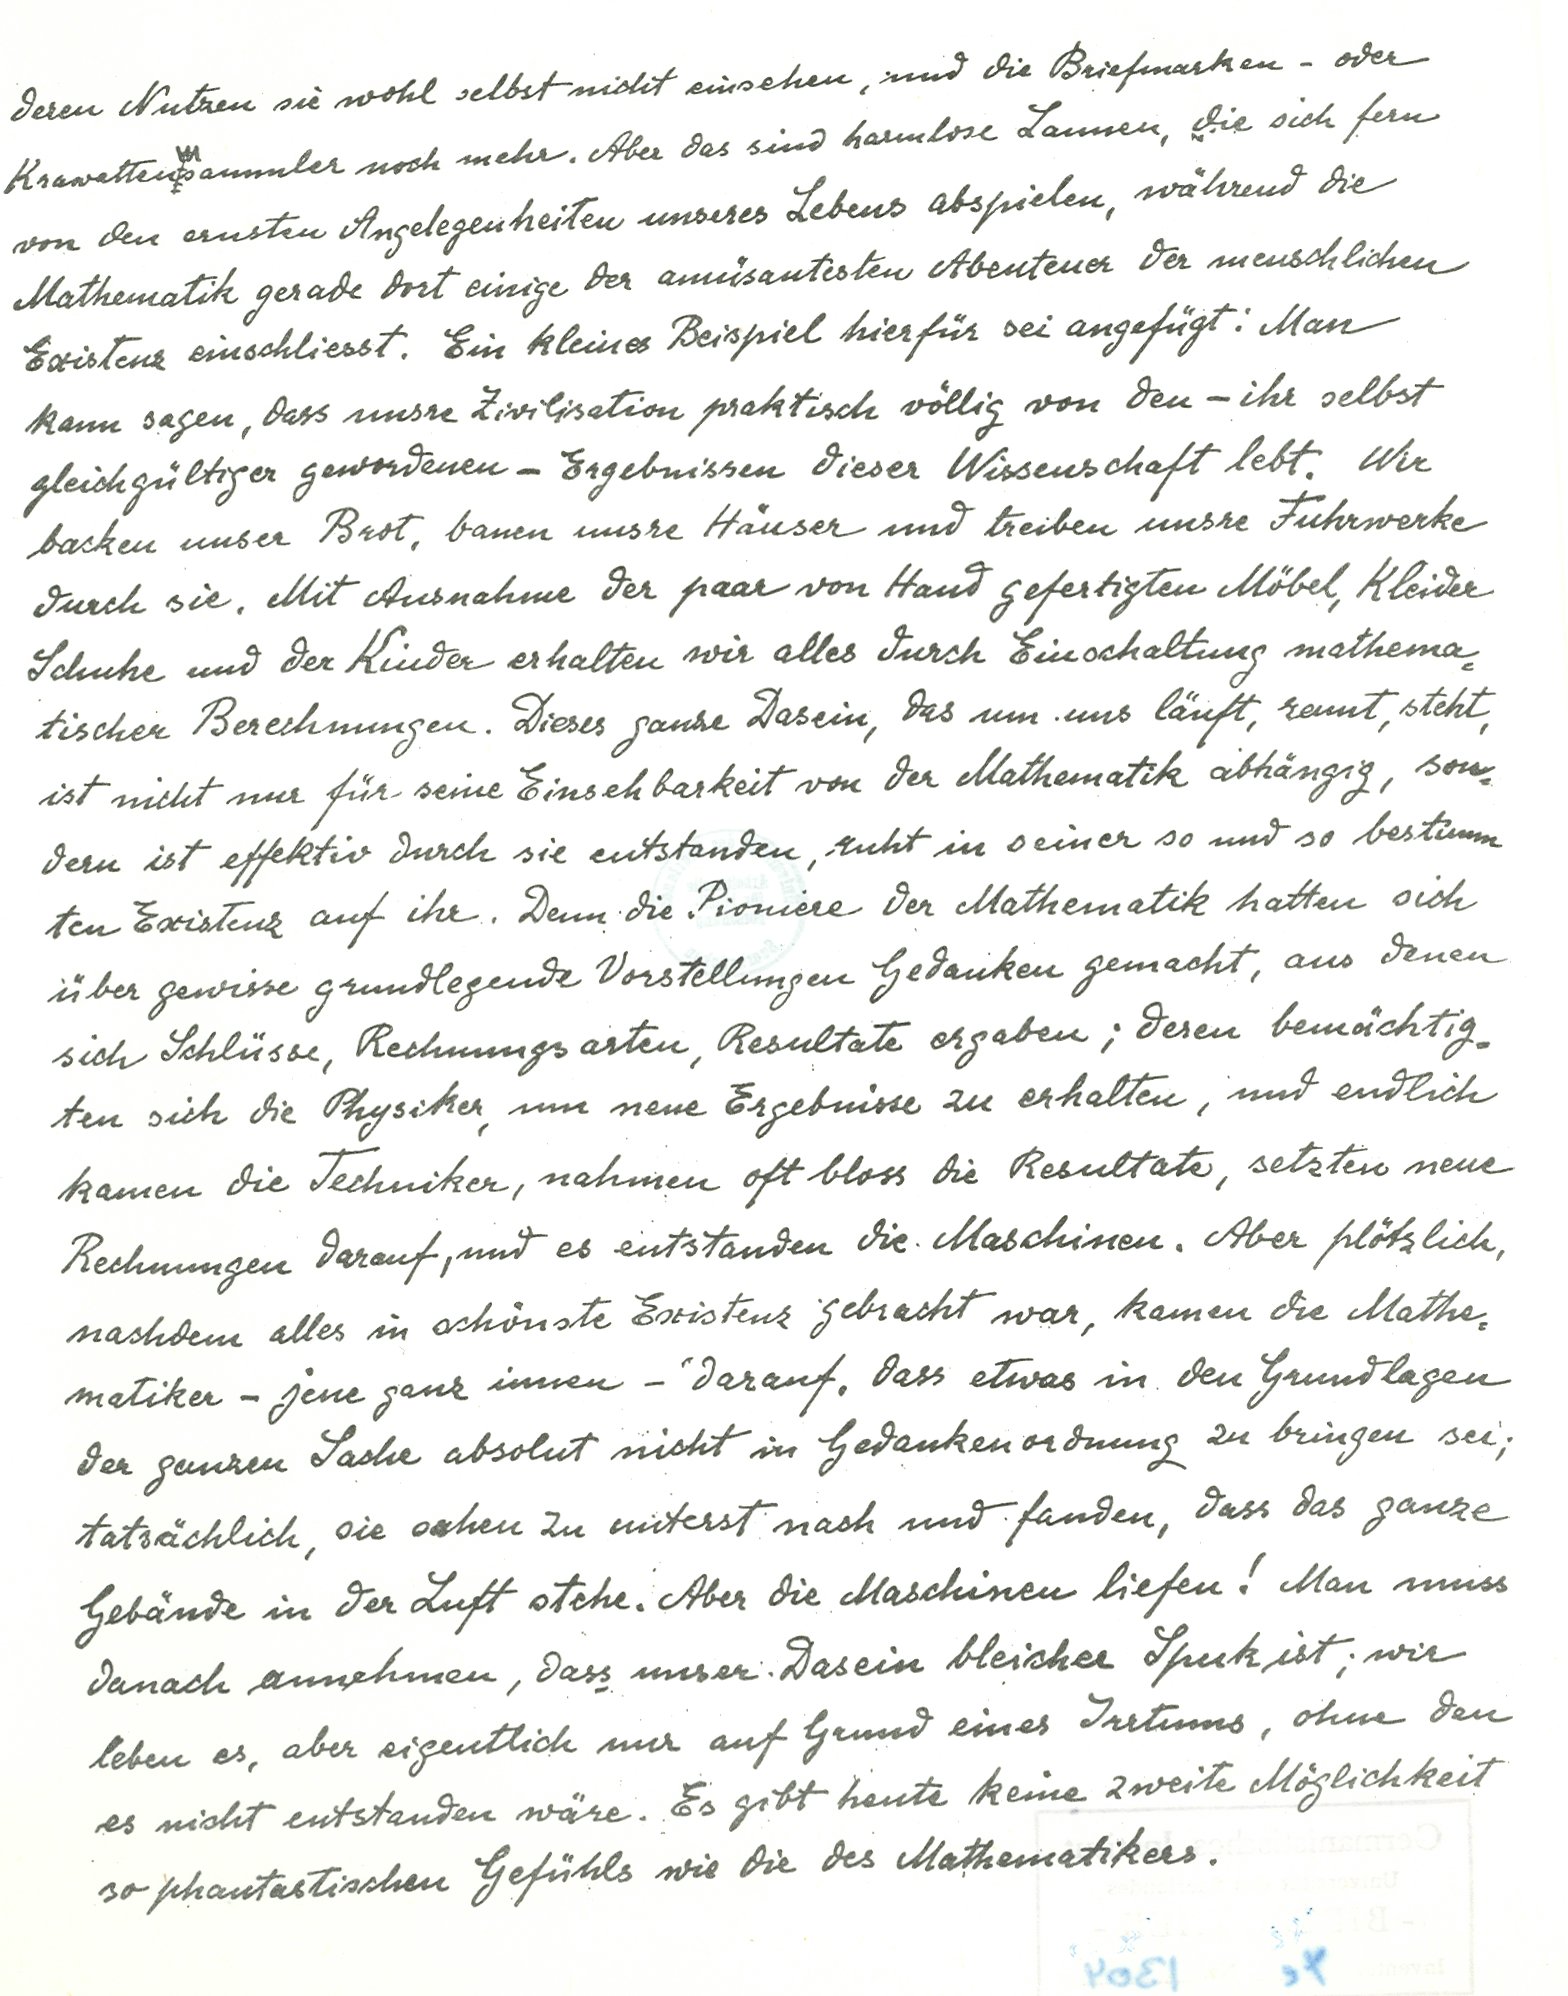 deren Nutzen sie wohl selbst nicht einsehen, und die Briefmarken - oder
Krawattensammler noch mehr. Aber das sind harmlose Launen, die sich fern
von den ernsten Angelegenheiten unseres Lebens abspielen, während die
Mathematik gerade dort einige der amüsantesten Abenteuer der menschlichen
Existenz einschliesst. Ein kleines Beispiel hierfür sei angefügt: Man
kann sagen, dass unsre Zivilisation praktisch völlig von den – ihr selbst
gleichgültiger gewordenen – Ergebnissen dieser Wissenschaft lebt. Wir
backen unser Brot, bauen unsre Häuser und treiben unsre Fuhrwerke
durch sie. Mit Ausnahme der paar von Hand gefertigten Möbel, Kleider
Schuhe und der Kinder erhalten wir alles durch Einschaltung mathema=
tischer Berechnungen. Dieses ganze Dasein, das um uns läuft, rennt, steht,
ist nicht nur für seine Einsehbarkeit von der Mathematik abhängig, son=
dern ist effektiv durch sie entstanden, ruht in seiner so und so bestimm
ten Existenz auf ihr. Denn die Pioniere der Mathematik hatten sich
über gewisse grundlegende Vorstellungen Gedanken gemacht, aus denen
sich Schlüsse, Rechnungsarten, Resultate ergaben; deren bemächtig=
ten sich die Physiker, um neue Ergebnisse zu erhalten, und endlich
kamen die Techniker, nahmen oft bloss die Resultate, setzten neue
Rechnungen darauf, und es entstanden die Maschinen. Aber plötzlich,
nachdem alles in schönste Existenz gebracht war, kamen die Mathe=
matiker – jene ganz innen – darauf, dass etwas in den Grundlagen
der ganzen Sache absolut nicht in Gedankenordnung zu bringen sei;
tatsächlich, sie sahen zu unterst nach und fanden, dass das ganze
Gebäude in der Luft stehe. Aber die Maschinen liefen! Man muss
danach annehmen, dass unser Dasein bleicher Spuk ist; wir
leben es, aber eigentlich nur auf Grund eines Irrtums, ohne den
es nicht entstanden wäre. Es gibt heute keine zweite Möglichkeit
so phantastischen Gefühls wie die des Mathematikers.